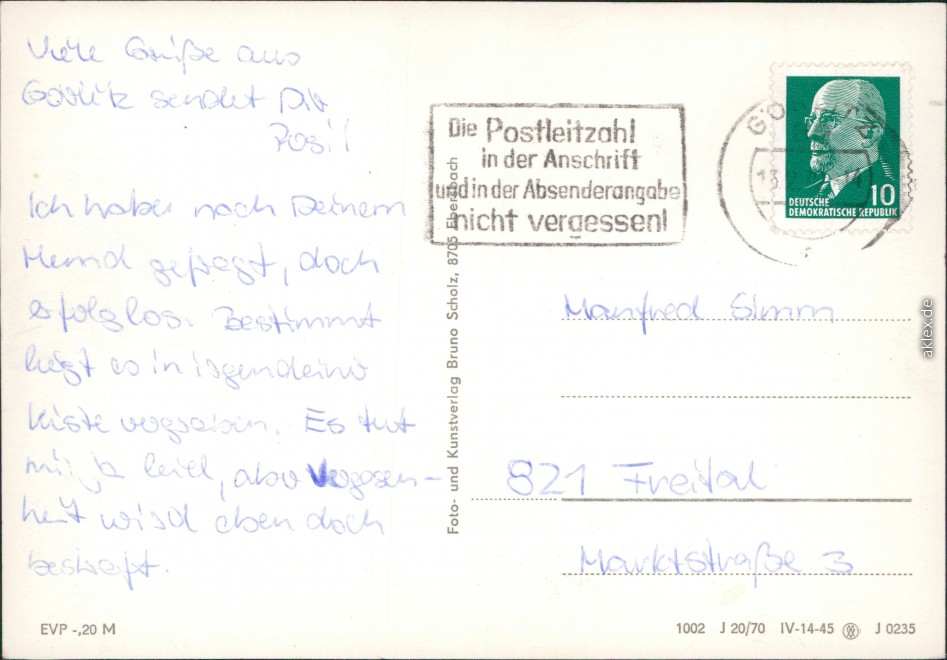 Viele Grüße aus
Görlitz sendet Dir
Posil
Ich habe nach Deinem
Hemd gefragt, doch
erfolglos. Bestimmt
liegt es in irgendeiner
Kiste vergraben. Es tut
mir ja leid, aber Vergessen-
heit wird eben doch
bestraft.
EVP -,20 M
Foto- und Kunstverlag Bruno Scholz, 8705 Ebersbach
Die Postleitzahl
in der Anschrift
und in der Absenderangabe
nicht vergessen!
10
DEUTSCHE
DEMOKRATISCHE REPUBLIK
Manfred Simm
821 Freital
Marktstraße 3
1002 J 20/70 IV-14-45 J 0235
aklex.de